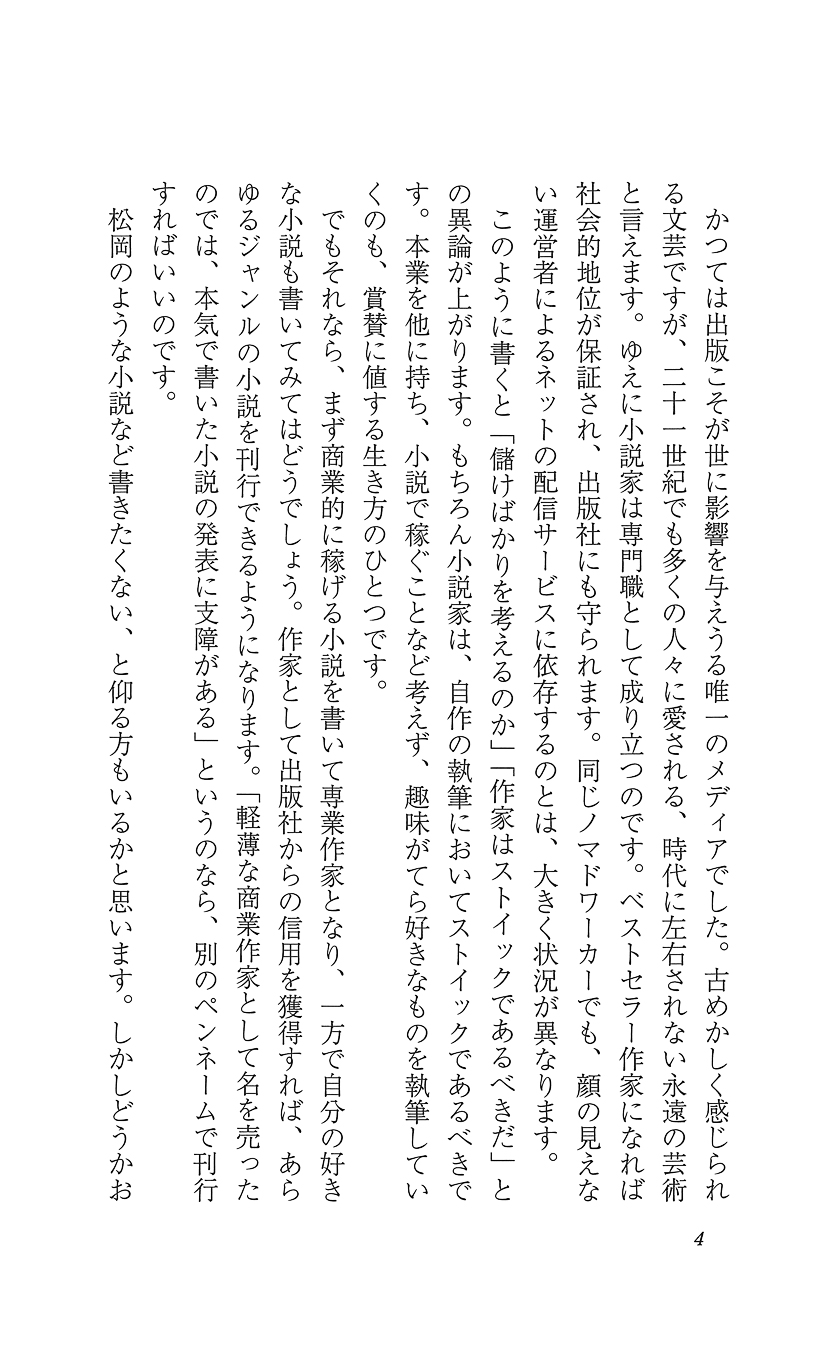 かつては出版こそが世に影響を与えうる唯一のメディアでした。古めかしく感じられ
る文芸ですが、二十一世紀でも多くの人々に愛される、時代に左右されない永遠の芸術
と言えます。ゆえに小説家は専門職として成り立つのです。ベストセラー作家になれば
社会的地位が保証され、出版社にも守られます。同じノマドワーカーでも、顔の見えな
い運営者によるネットの配信サービスに依存するのとは、大きく状況が異なります。
このように書くと「儲けばかりを考えるのか」「作家はストイックであるべきだ」と
の異論が上がります。もちろん小説家は、自作の執筆においてストイックであるべきで
す。本業を他に持ち、小説で稼ぐことなど考えず、趣味がてら好きなものを執筆してい
くのも、賞賛に値する生き方のひとつです。
でもそれなら、まず商業的に稼げる小説を書いて専業作家となり、一方で自分の好き
な小説も書いてみてはどうでしょう。作家として出版社からの信用を獲得すれば、あら
ゆるジャンルの小説を刊行できるようになります。「軽薄な商業作家として名を売った
のでは、本気で書いた小説の発表に支障がある」というのなら、別のペンネームで刊行
すればいいのです。
松岡のような小説など書きたくない、と仰る方もいるかと思います。しかしどうかお
4